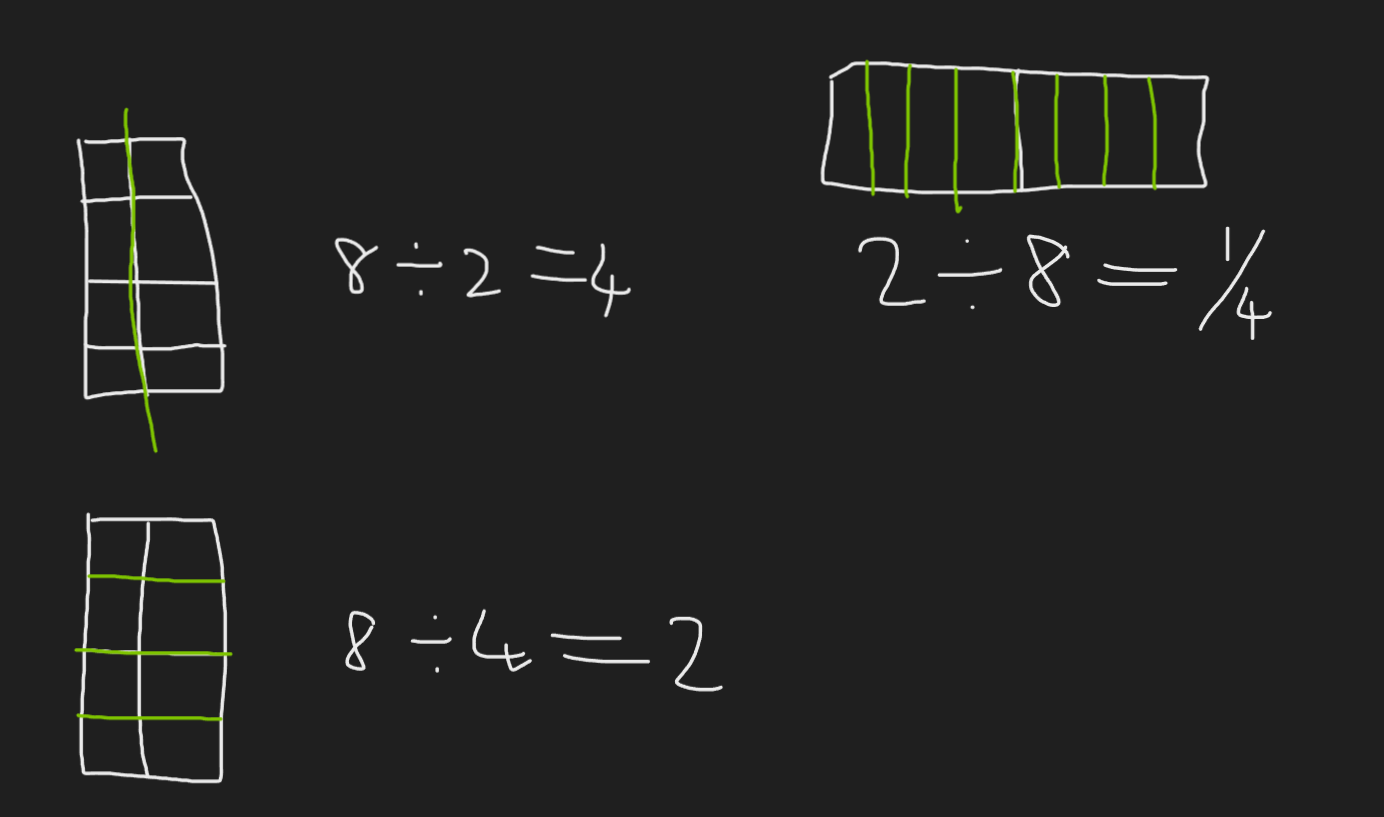 8÷2=4
2÷8=1/4
8÷4=2